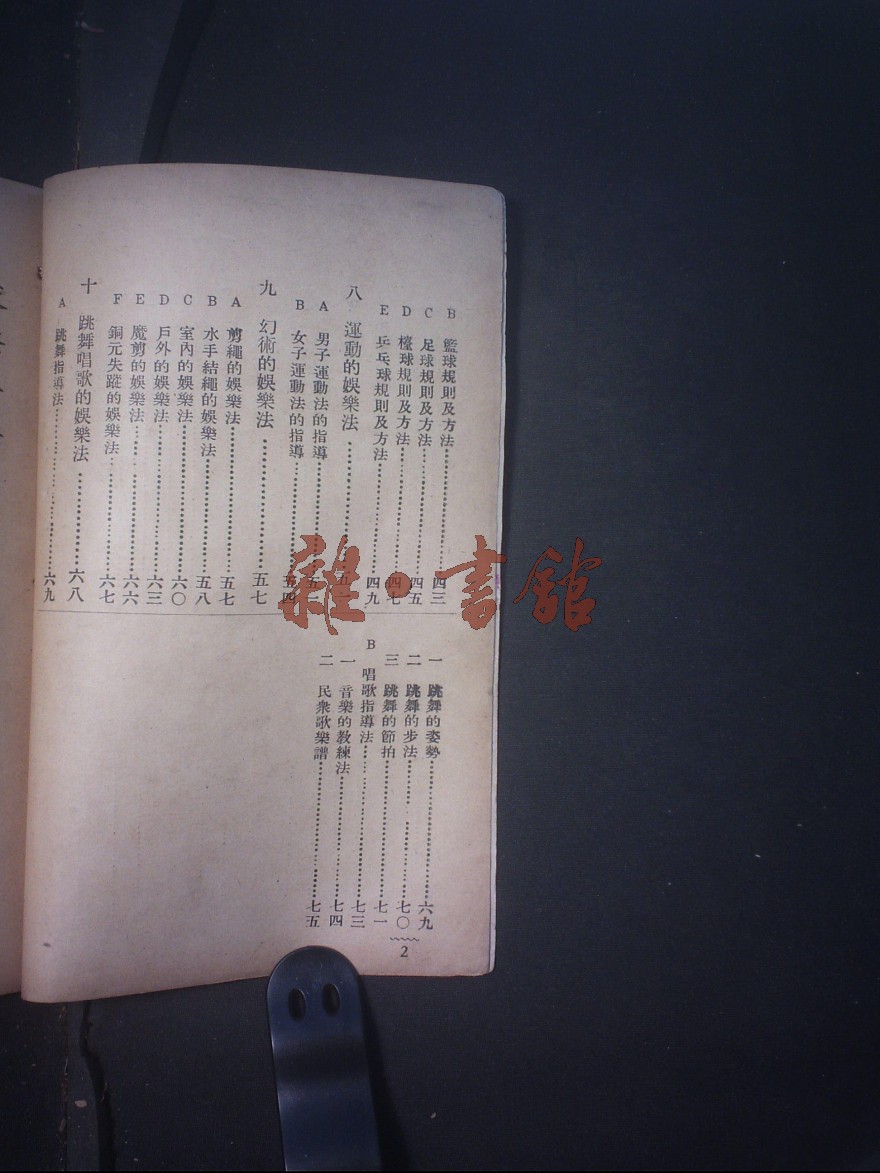 B 籃球規則及方法 四三
C 足球規則及方法 四五
D 檯球規則及方法 四七
E 乒乓球規則及方法 四九
八 運動的娛樂法 五一
A 男子運動法的指導 五一
B 女子運動法的指導 五四
九 幻術的娛樂法 五七
A 剪繩的娛樂法 五七
B 水手結繩的娛樂法 五八
C 室內的娛樂法 六〇
D 戶外的娛樂法 六三
E 魔剪的娛樂法 六六
F 銅元失蹤的娛樂法 六七
十 跳舞唱歌的娛樂法 六八
A 跳舞指導法 六九
一 跳舞的姿勢 六九
二 跳舞的步法 七〇
三 跳舞的節拍 七一
B 唱歌指導法 七三
一 音樂的教練法 七四
二 民衆歌樂譜 七五
2
雜·書館